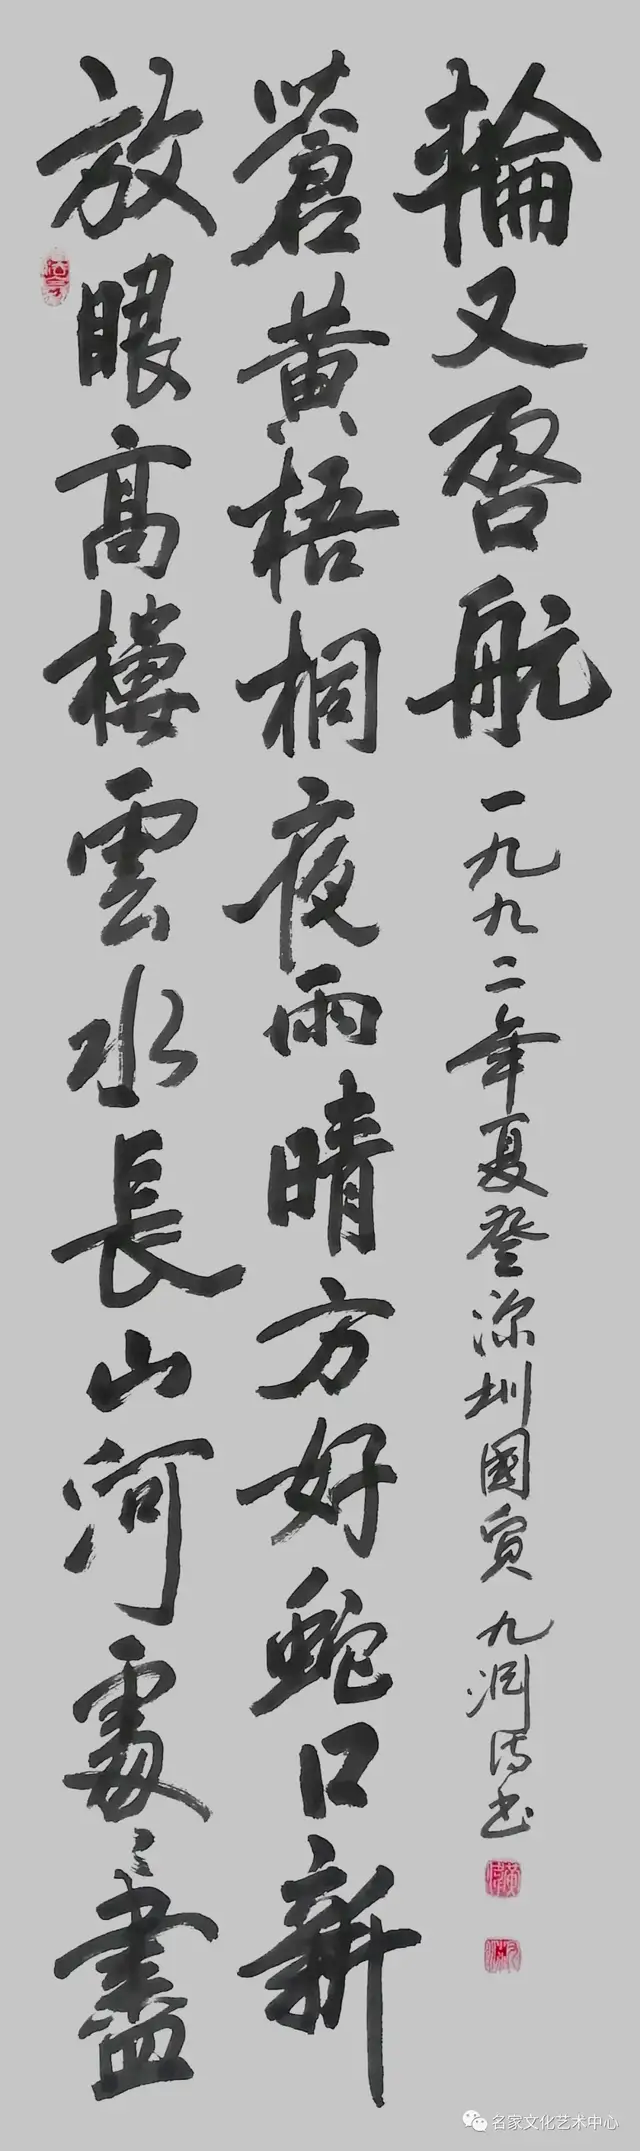 放眼高樓雲水長山河處々盡
蒼黃梧桐夜雨晴方好蛇口新
輪又啓航
一九九二年夏登深圳國貿 九书
名家文化艺术中心